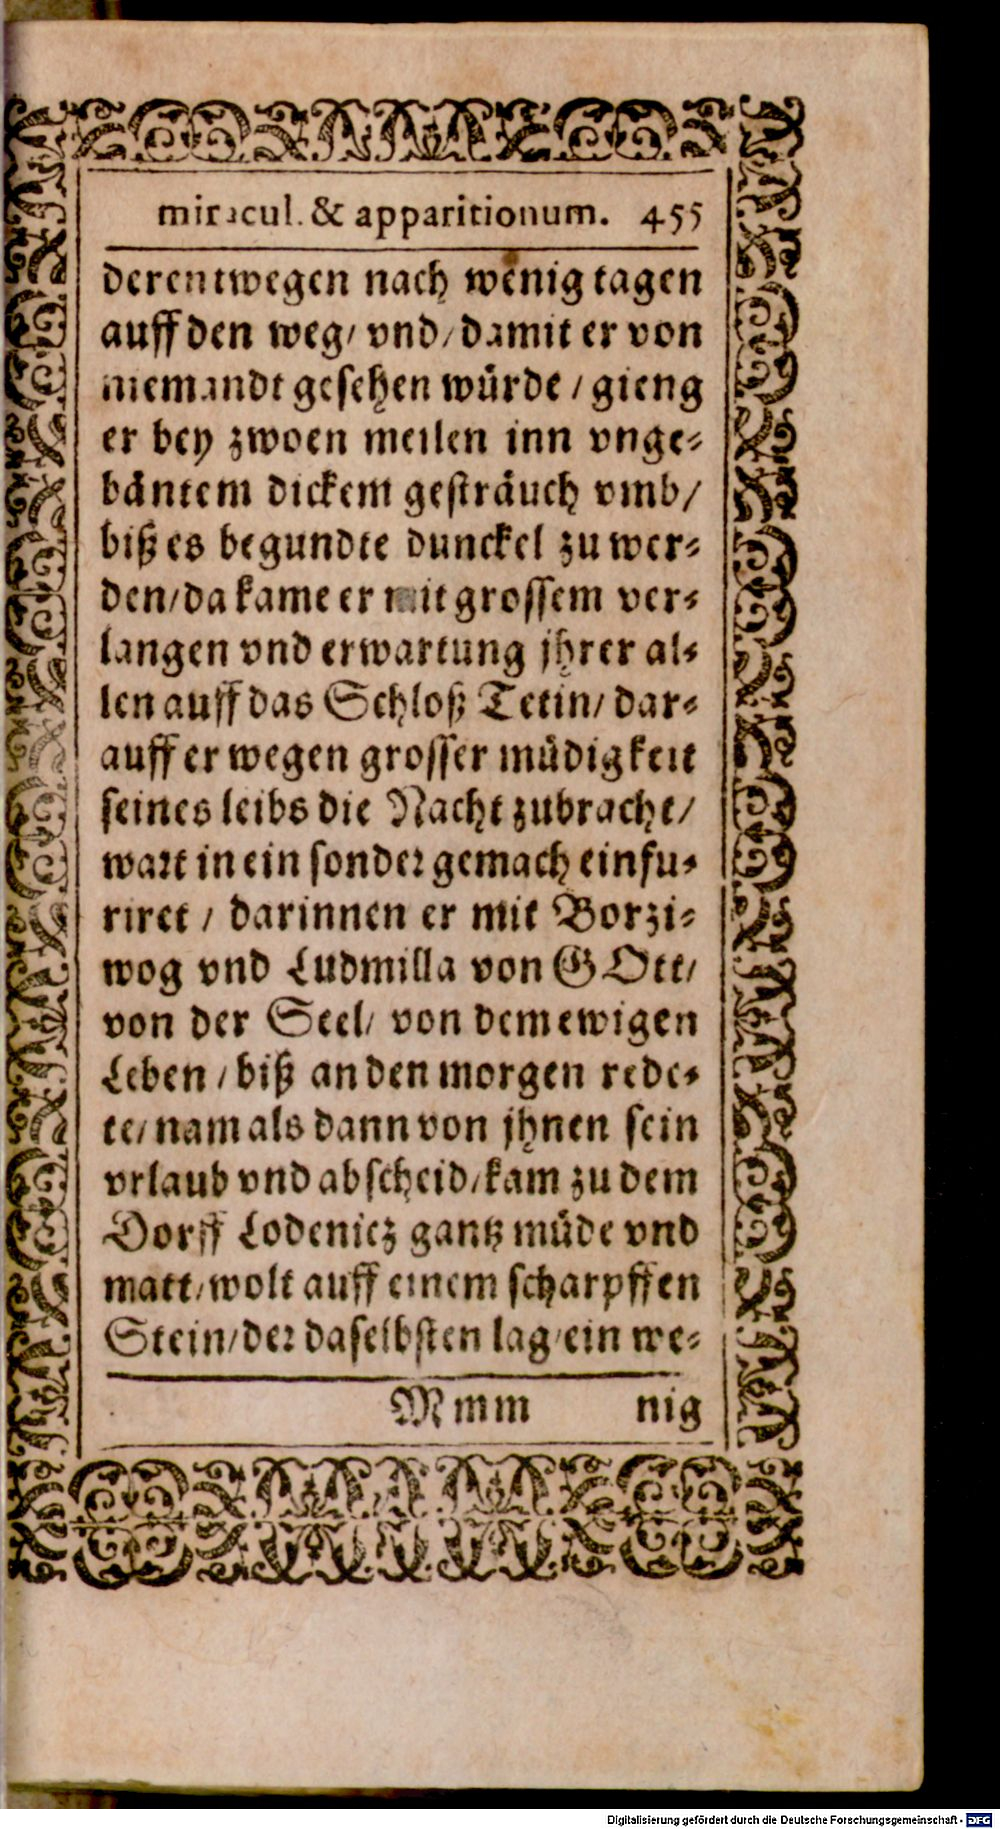 miracul. & apparitionum. 455
derentwegen nach wenig tagen
auff den weg/ vnd/ damit er von
niemandt gesehen würde / gieng
er bey zwoen meilen inn vnge⸗
bäntem dickem gesträuch vmb/
biß es begundte dunckel zu wer⸗
den/ da kame er mit grossem ver⸗
langen vnd erwartung jhrer al⸗
len auff das Schloß Tetin/ dar⸗
auff er wegen grosser müdigkeit
seines leibs die Nacht zubracht/
wart in ein sonder gemach einfu⸗
riret / darinnen er mit Borzi⸗
wog vnd Ludmilla von GOtt/
von der Seel/ von dem ewigen
Leben / biß an den morgen rede⸗
te/ nam als dann von jhnen sein
vrlaub vnd abscheid/ kam zu dem
Dorff Lodenicz gantz müde vnd
matt/ wolt auff einem scharpffen
Stein/ der daselbsten lag/ ein we⸗
Mmm nig
Digitalisierung gefördert durch die Deutsche Forschungsgemeinschaft - DFG